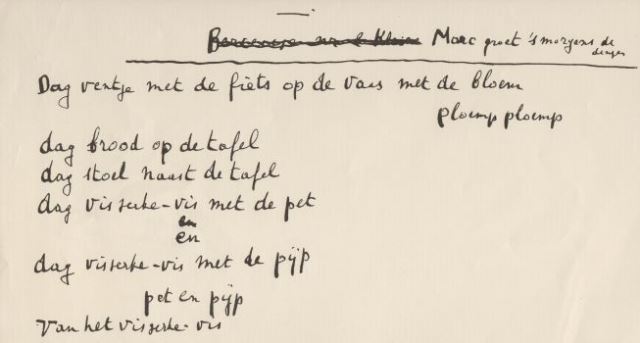 Berceuse nr 2 Klein Marc groet 's morgens de dingen
Dag ventje met de fiets op de vaas met de bloem
ploemp ploemp
dag brood op de tafel
dag stoel naast de tafel
dag visserke-vis met de pet
en
en
dag visserke-vis met de pijp
pet en pijp
van het visserke-vis